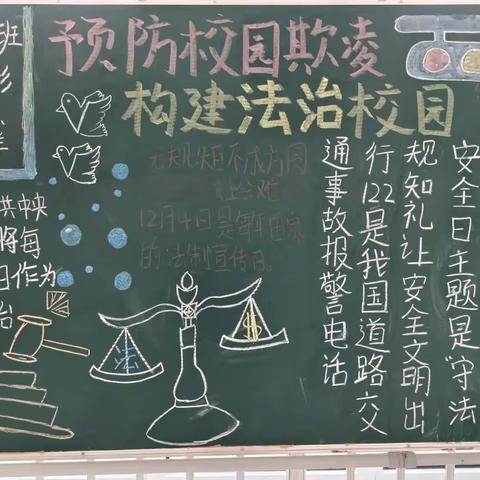 预防校园欺凌
构建法治校园
班
共中央
将每
日作为
治
无规矩不成方圆
12月4日是每年国家
的法制宣传日。
安全日主题是“守法
规知礼让安全文明出
行122是我国道路交
通事故报警电话
法
$